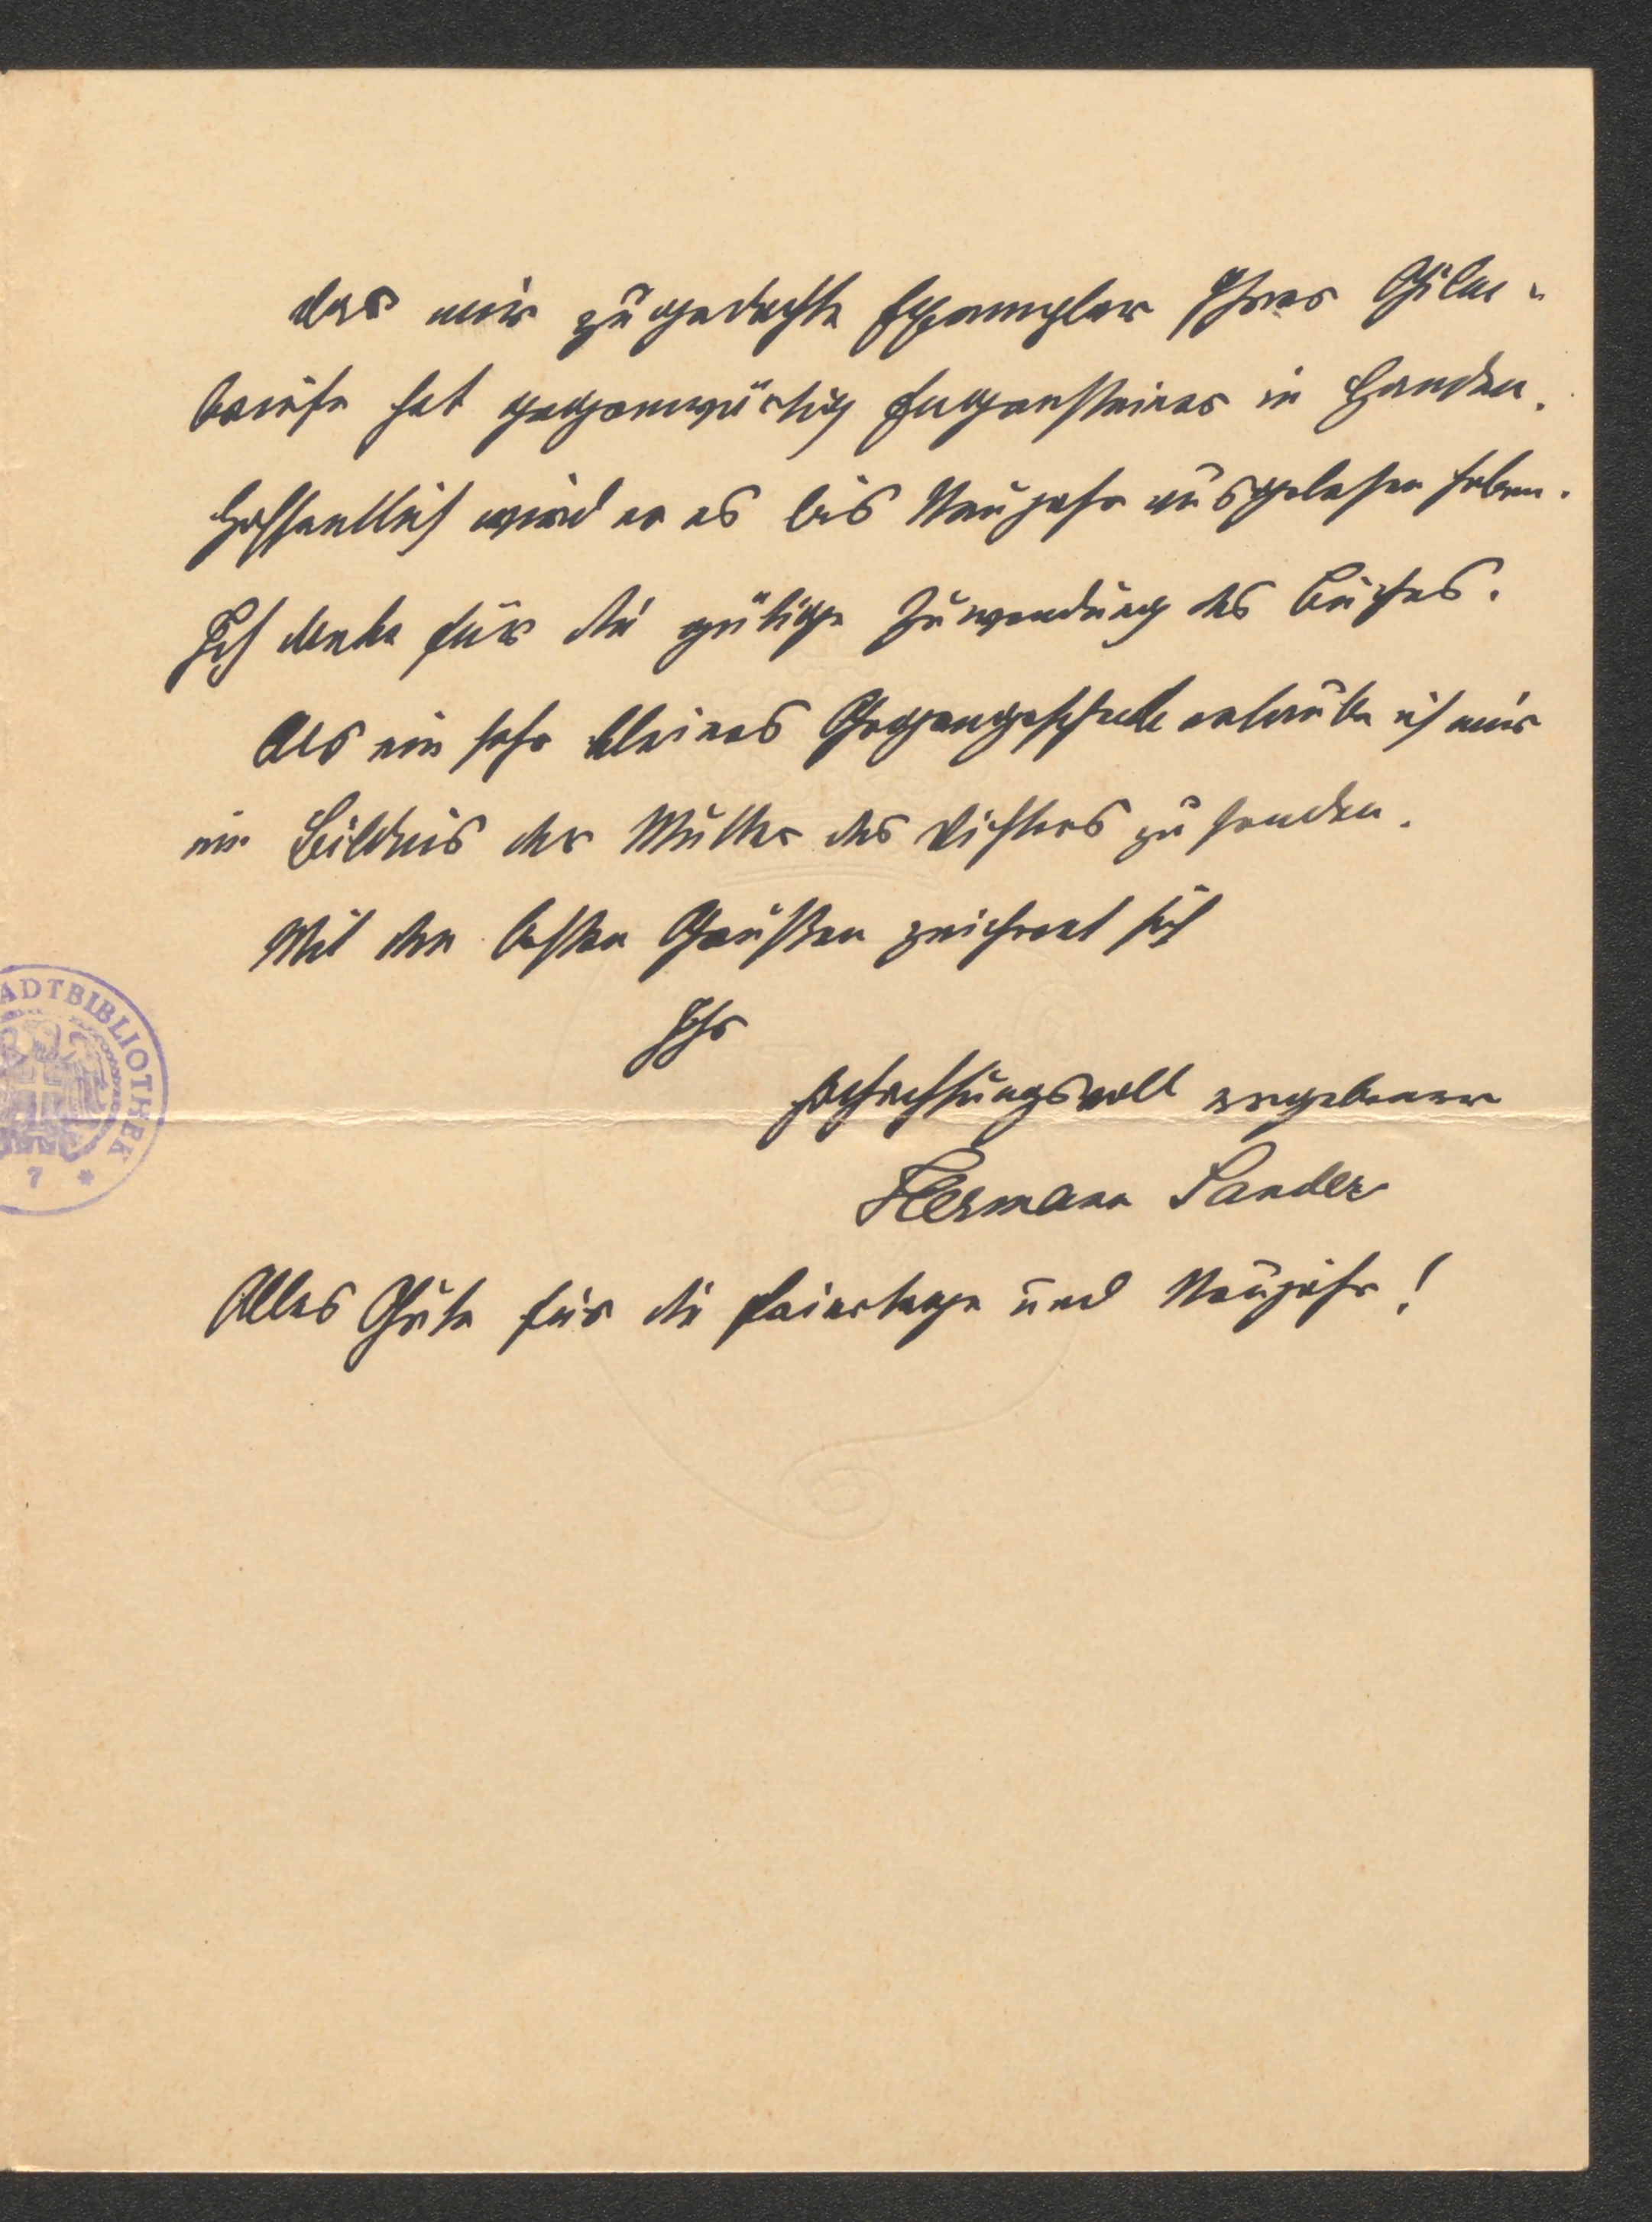 das mir zugedachte Exemplar Ihrer Gilm-
briefe hat gegenwärtig Hugensteiner in Handen.
Hoffentlich wird er es bis Neujahr ausgelesen haben.
Ich danke für die gütige Zuwendung des Buches.
Als ein sehr kleines Gegengeschenk erlaube ich mir
ein Bildnis der Mutter des Dichters zu senden.
Mit den besten Grüßen zeichnet sich
Ihr
hochachtungsvoll ergebener
Hermann Sander
ADTBIBLIOTHEK
7 *
Alles Gute für die Feiertage und Neujahr!